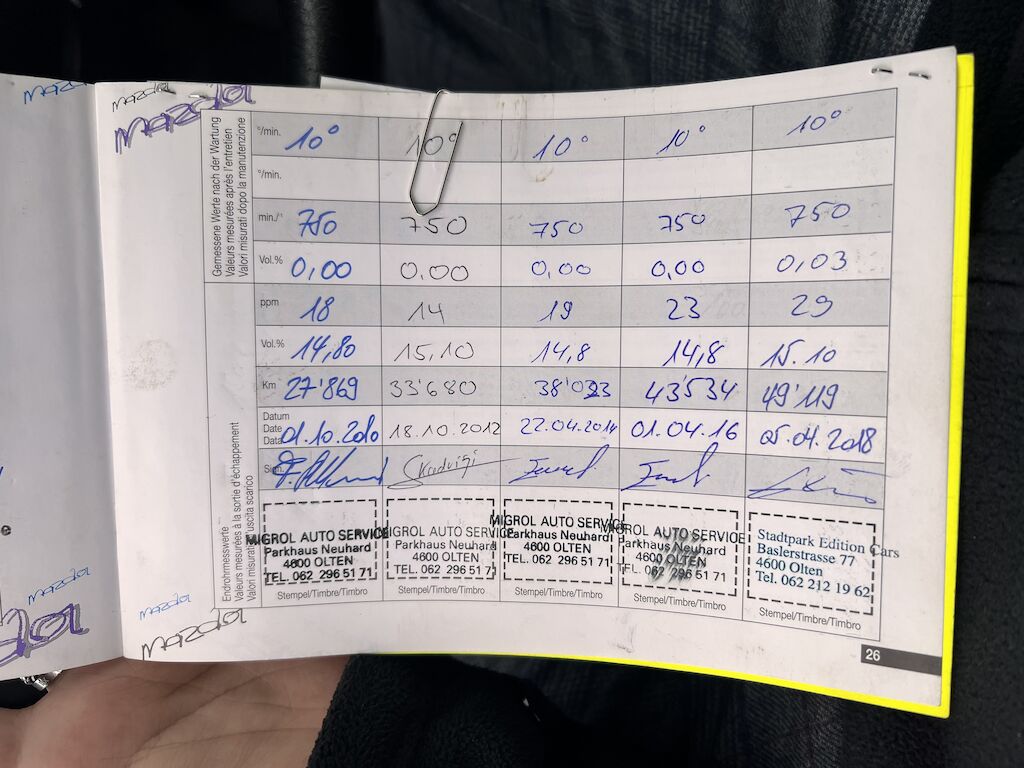 mazda
mazda
mazda
mazda
Gemessene Werte nach der Wartung
Valeurs mesurées après l'entretien
Valori misurati dopo la manutenzione
°/min. 10° 10° 10° 10° 10°
°/min.
min./⁻¹ 750 750 750 750 750
Vol.% 0,00 0,00 0,00 0,00 0,03
Endrohrmesswerte
Valeurs mesurées à la sortie d'échappement
Valori misurati all'uscita scarico
ppm 18 14 19 23 29
Vol.% 14,80 15,10 14,8 14,8 15.10
Km 27'869 33'680 38'033 43'534 49'119
Datum
Date
Data 01.10.2010 18.10.2012 22.04.2014 01.04.16 05.04.2018
Sign.
MIGROL AUTO SERVICE
Parkhaus Neuhard
4600 OLTEN
TEL. 062 296 51 71
Stempel/Timbre/Timbro
MIGROL AUTO SERVICE
Parkhaus Neuhard
4600 OLTEN
TEL. 062 296 51 71
Stempel/Timbre/Timbro
MIGROL AUTO SERVICE
Parkhaus Neuhard
4600 OLTEN
TEL. 062 296 51 71
Stempel/Timbre/Timbro
MIGROL AUTO SERVICE
Parkhaus Neuhard
4600 OLTEN
TEL. 062 296 51 71
Stempel/Timbre/Timbro
Stadtpark Edition Cars
Baslerstrasse 77
4600 Olten
Tel. 062 212 19 62
Stempel/Timbre/Timbro
mazda
mazda
mazda
26